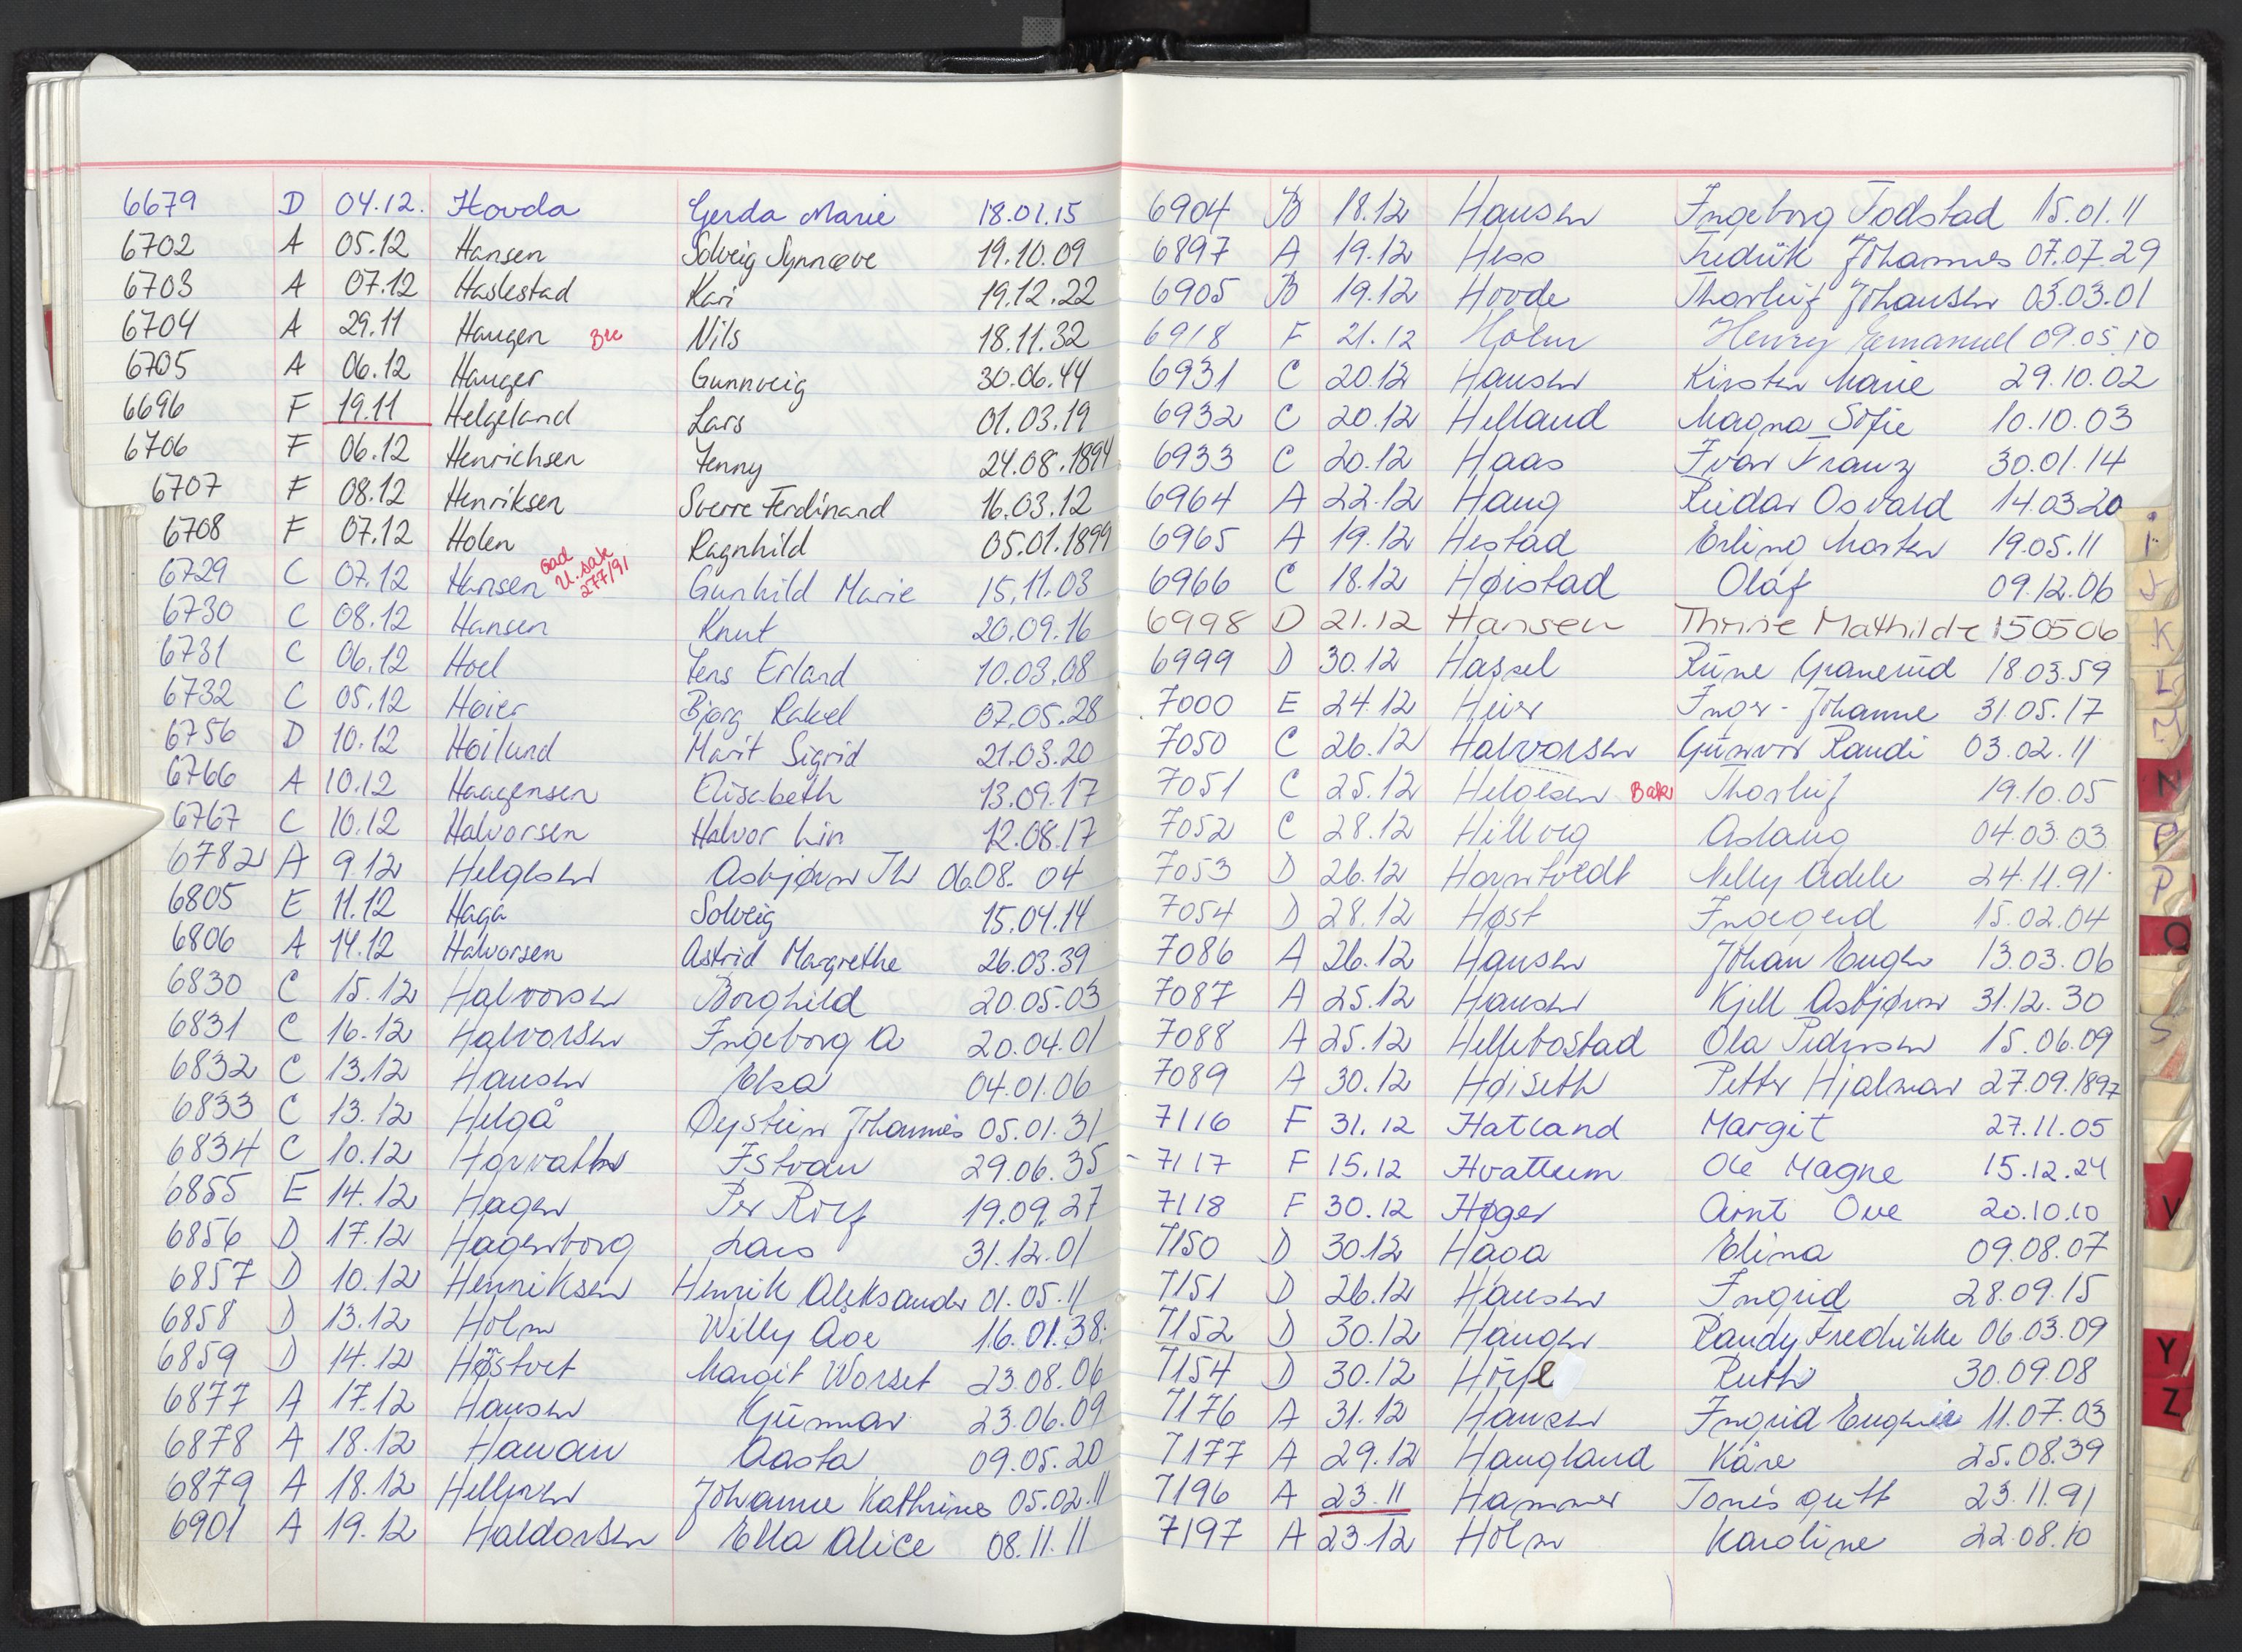 6679 D 04.12. Hovda Gerda Marie 18.01.15
6702 A 05.12 Hansen Solveig Synnøve 19.10.09
6703 A 07.12 Haslestad Kari 19.12.22
6704 A 29.11 Haugen Bre Nils 18.11.32
6705 A 06.12 Hauger Gunnveig 30.06.44
6696 F 19.11 Helgeland Lars 01.03.19
6706 F 06.12 Henrichsen Jenny 24.08.1894
6707 F 08.12 Henriksen Sverre Ferdinand 16.03.12
6708 F 07.12 Holen Ragnhild 05.01.1899
6729 C 07.12 Hansen U.sak 277/91 Gunhild Marie 15.11.03
6730 C 08.12 Hansen Knut 20.09.16
6731 C 06.12 Hoel Jens Erland 10.03.08
6732 C 05.12 Høier Bjørg Rakel 07.05.28
6756 D 10.12 Høilund Marit Sigrid 21.03.20
6766 A 10.12 Haagensen Elisabeth 13.09.17
6767 C 10.12 Halvorsen Halvor Lin 12.08.17
6782 A 9.12 Helgesen Asbjørn Th 06.08. 04
6805 E 11.12 Haga Solveig 15.04.14
6806 A 14.12 Halvorsen Astrid Margrethe 26.03.39
6830 C 15.12 Halvorsen Borghild 20.05.03
6831 C 16.12 Halvorsen Ingeborg A 20.04.01
6832 C 13.12 Hansen Elsa 04.01.06
6833 C 13.12 Helgå Øystein Johannes 05.01.31
6834 C 10.12 Horvath Istvan 29.06.35
6855 E 14.12 Hagen Per Rolf 19.09.27
6856 D 17.12 Hagenborg Lars 31.12.01
6857 D 10.12 Henriksen Henrik Aleksander 01.05.11
6858 D 13.12 Holm Willy Age 16.01.38
6859 D 14.12 Høstvet Margit Worset 23.08.06
6877 A 17.12 Hansen Gunnar 23.06.09
6878 A 18.12 Hawan Aasta 09.05.20
6879 A 18.12 Hellgren Johanne Kathrine 05.02.11
6901 A 19.12 Haldorsen Ella Alice 08.11.11
6904 B 18.12 Hansen Ingeborg Todstad 15.01.11
6897 A 19.12 Hess Fredrik Johannes 07.07.29
6905 B 19.12 Hovde Thorleif Johansen 03.03.01
6918 F 21.12 Holm Henry Emanuel 09.05.10
6931 C 20.12 Hansen Kirsten Marie 29.10.02
6932 C 20.12 Helland Magna Sofie 10.10.03
6933 C 20.12 Haas Ivar Franz 30.01.14
6964 A 22.12 Haug Reidar Osvald 14.03.20
6965 A 19.12 Hestad Erling Morten 19.05.11
6966 C 18.12 Høistad Olaf 09.12.06
6998 D 21.12 Hansen Thrine Mathilde 150506
6999 D 30.12 Hassel Rune Granerud 18.03.59
7000 E 24.12 Heier Inger-Johanne 31.05.17
7050 C 26.12 Halvorsen Gunvor Randi 03.02.11
7051 C 25.12 Helgesen Bak Thorleif 19.10.05
7052 C 28.12 Hillveg Aslaug 04.03.03
7053 D 26.12 Horntvedt Nelly Adele 24.11.91
7054 D 28.12 Høst Ingegerd 15.02.04
7086 A 26.12 Hansen Johan Eugen 13.03.06
7087 A 25.12 Hansen Kjell Asbjørn 31.12.30
7088 A 25.12 Hellebostad Ola Pedersen 15.06.09
7089 A 30.12 Høiseth Petter Hjalmar 27.09.1897
7116 F 31.12 Hatland Margit 27.11.05
7117 F 15.12 Hvattum Ole Magne 15.12.24
7118 F 30.12 Høger Arnt Ove 20.10.10
7150 D 30.12 Haga Elina 09.08.07
7151 D 26.12 Hansen Ingrid 28.09.15
7152 D 30.12 Haugen Randy Fredrikke 06.03.09
7154 D 30.12 Ruth 30.09.08
7176 A 31.12 Hansen Ingrid Eugenie 11.07.03
7177 A 29.12 Haugland Kåre 25.08.39
7196 A 23.11 Hammer Tones gutt 23.11.91
7197 A 23.12 Holm Karoline 22.08.10
i
J
K
L
M
N
Ø
P
Q
S
V
Y
Z